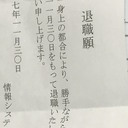 退職願
身上の都合により、勝手ながら
一一月三〇日をもって退職いた
い申し上げます。
七年一一月三〇日
情報システ